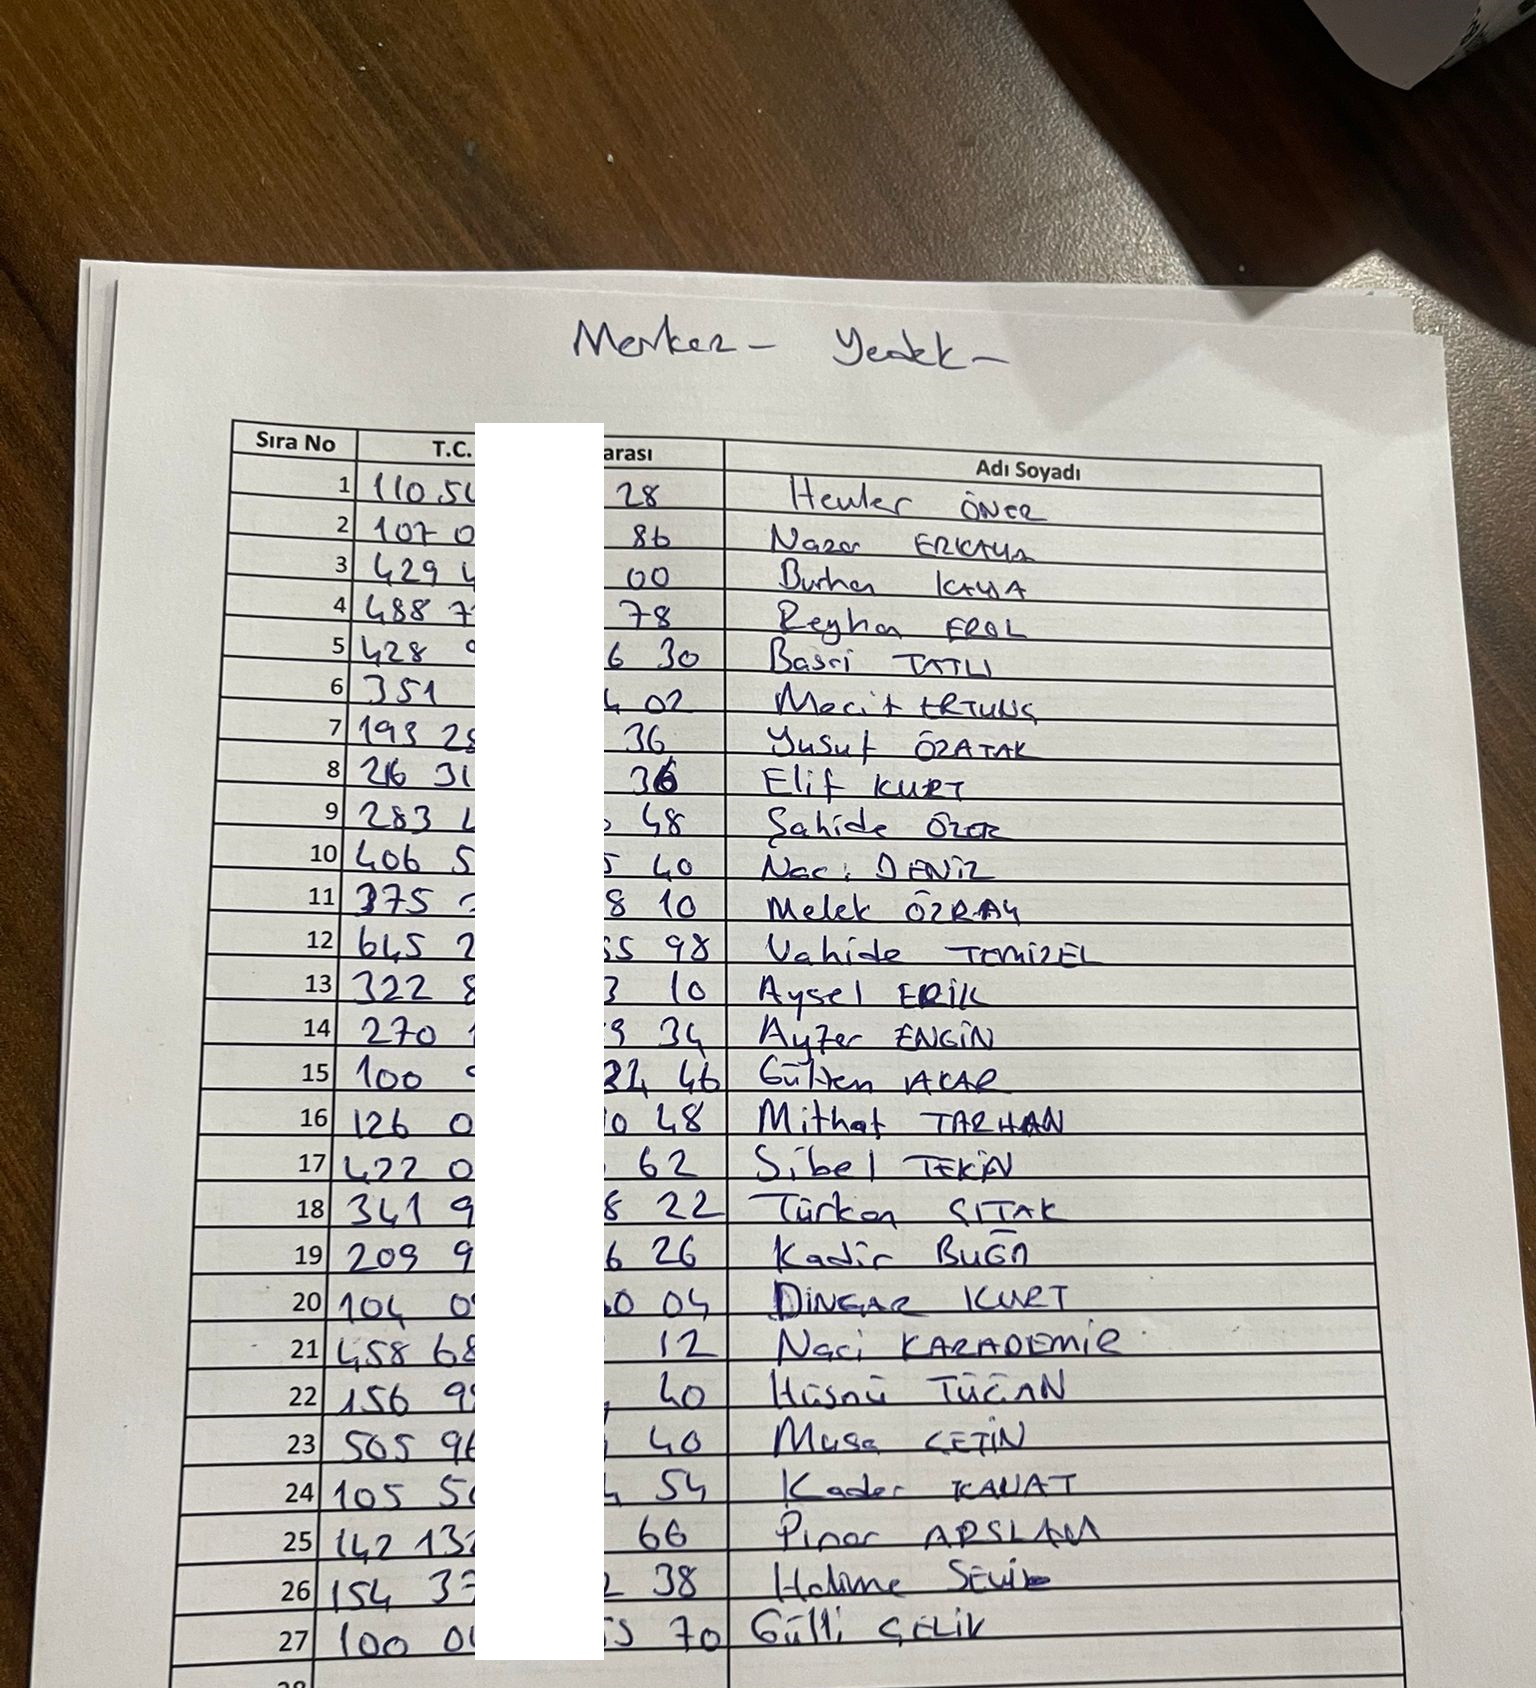 Merkez - Yedek -
Sıra No T.C. arası Adı Soyadı
1 110 54 28 Hevler ÖNER
2 107 0 86 Nazar ERKAYA
3 429 4 00 Burhan KAYA
4 488 7 78 Reyhan EROL
5 428 9 6 30 Basri TATLI
6 351 4 02 Macit ERTUNÇ
7 193 25 36 Yusuf ÖZATAK
8 216 31 36 Elif KURT
9 283 4 48 Şahide ÖZER
10 406 5 5 40 Naci DENİZ
11 375 8 10 Melek ÖZRAY
12 645 2 55 98 Vahide TEMİZEL
13 322 8 3 10 Aysel ERİK
14 270 1 9 34 Ayfer ENGİN
15 100 9 22 46 Gülten AKAR
16 126 0 0 48 Mithat TARHAN
17 422 0 62 Sibel TEKİN
18 341 9 8 22 Türkan SITAK
19 209 9 6 26 Kadir BUĞA
20 104 09 0 04 DİNGAR KURT
21 458 68 12 Naci KARADEMİR
22 156 99 40 Hüsnü TÜĞAN
23 505 96 40 Musa ÇETİN
24 105 50 4 54 Kader KANAT
25 142 132 66 Pınar ARSLAN
26 154 37 2 38 Halime SEVİL
27 100 00 55 70 Gülli ÇELİK